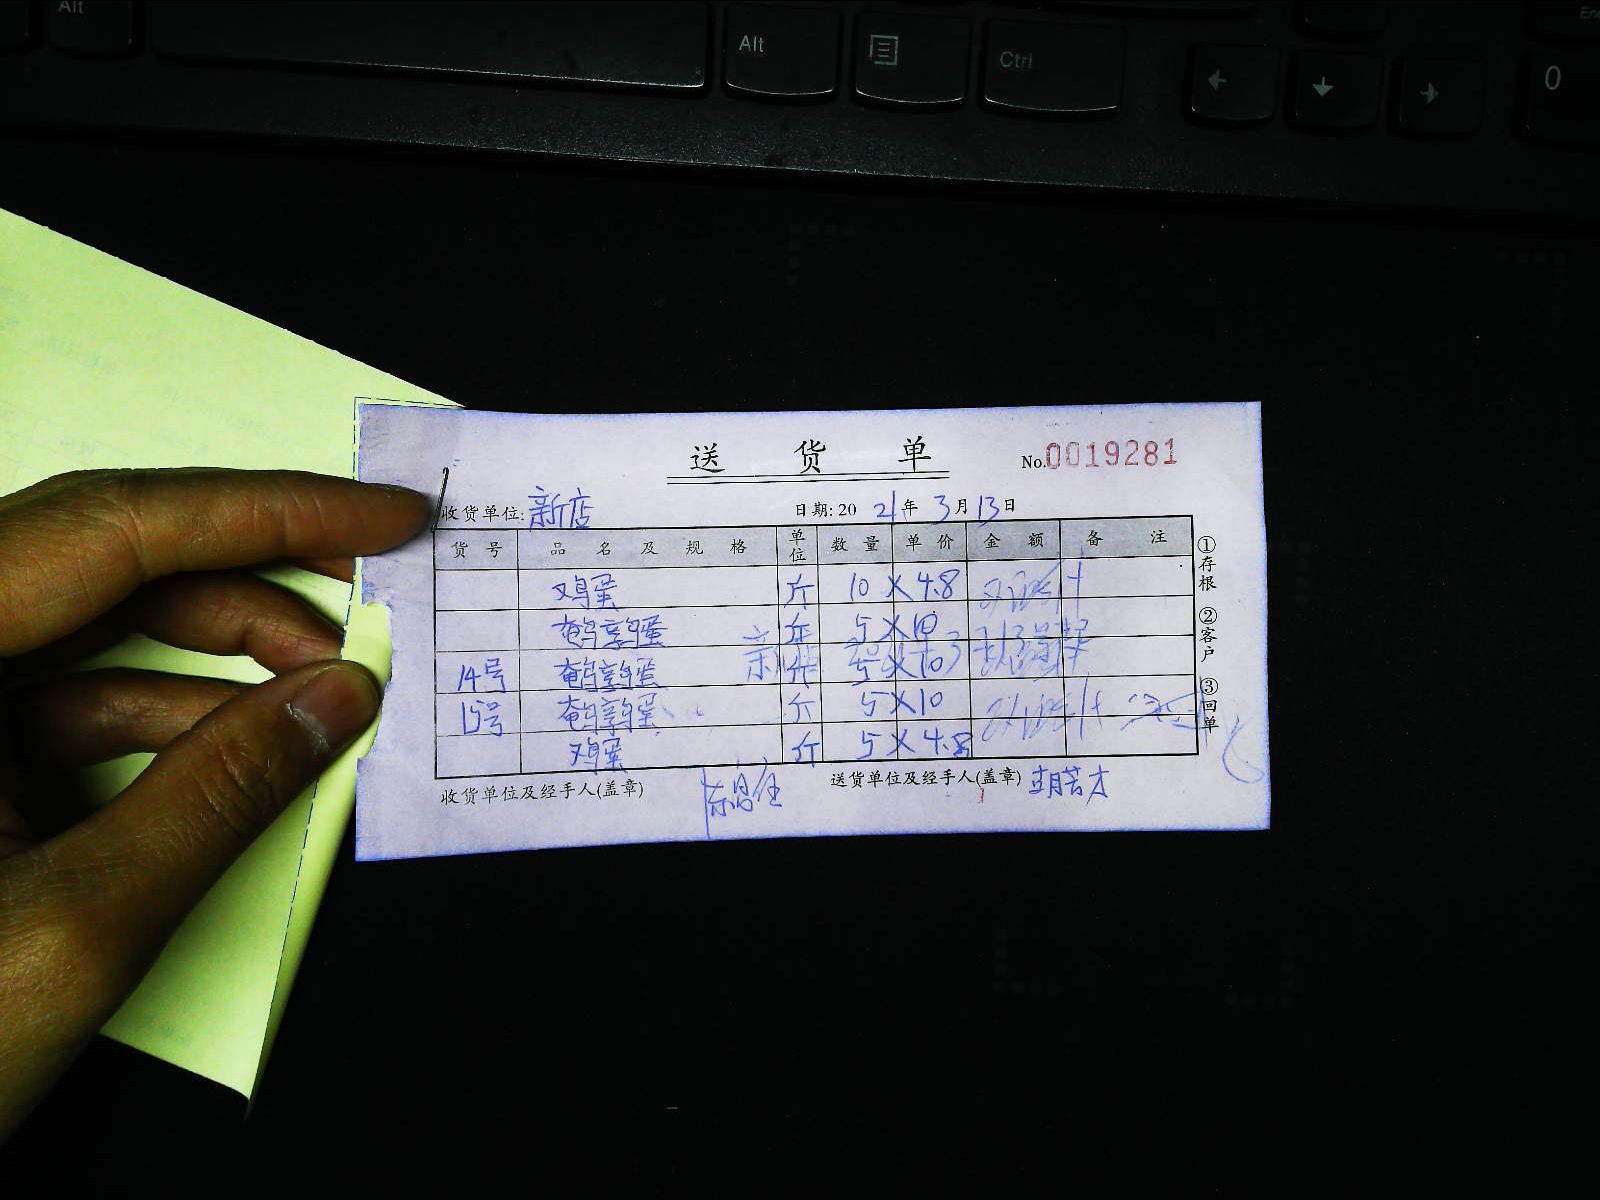 Alt
Alt
Ctrl
0
送货单
No.0019281
收货单位:新店 日期:2021年3月13日
货号 品名及规格 单位 数量 单价 金额 备注
鸡蛋 斤 10×4.8
鹌鹑蛋 斤 5×10
14号 鹌鹑蛋 斤 5×10
15号 鹌鹑蛋 斤 5×10
鸡蛋 斤 5×4.8
①存根 ②客户 ③回单
收货单位及经手人(盖章) 送货单位及经手人(盖章)